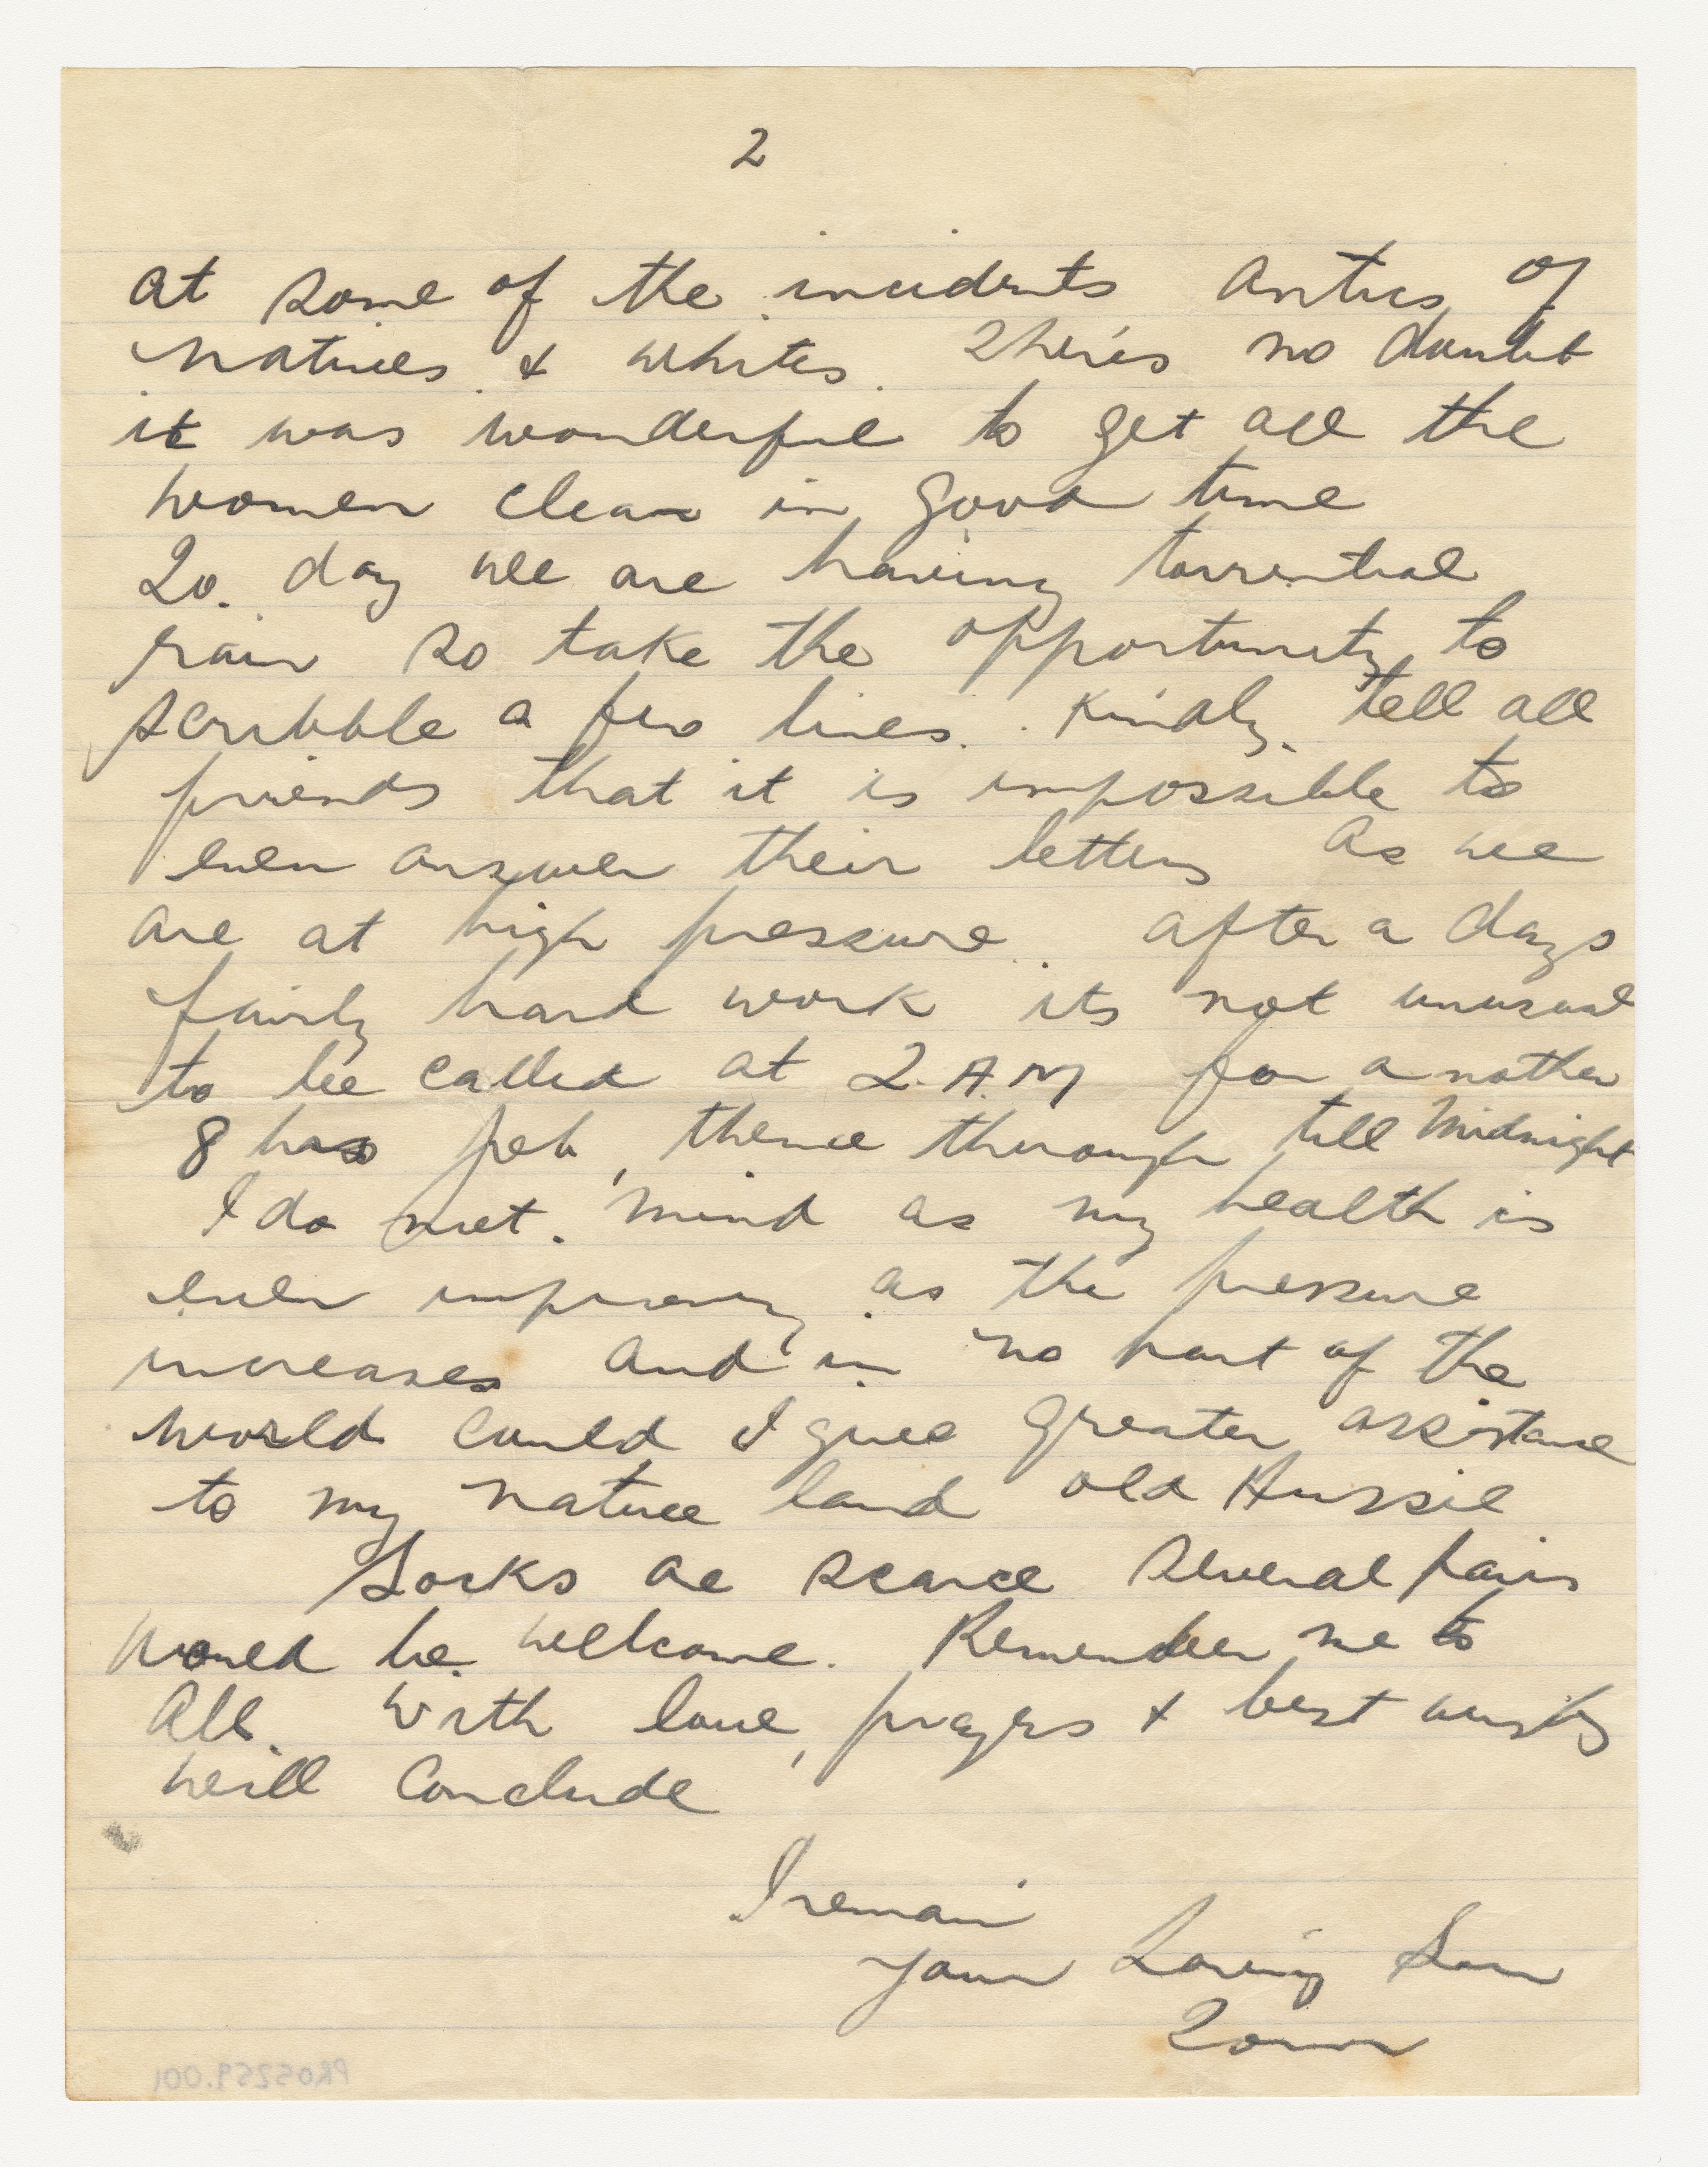 2
at some of the incidents antics of
natives & whites. There's no doubt
it was wonderful to get all the
women clear in good time
To. day we are having torrential
rain so take the opportunity to
scribble a few lines. Kindly tell all
friends that it is impossible to
even answer their letters as we
are at high pressure. after a days
fairly hard work its not unusual
to be called at 2. A.M for another
8 hrs job, thence through till Midnight
I do not. mind as my health is
even improving as the pressure
increases and in no part of the
world could I give greater assistance
to my native land old Aussie
Socks are scarce several pairs
would be wellcome. Remember me to
All. With love, prayers & best wishes
will conclude
I remain
your Loving Son
Tom
PR05259.001